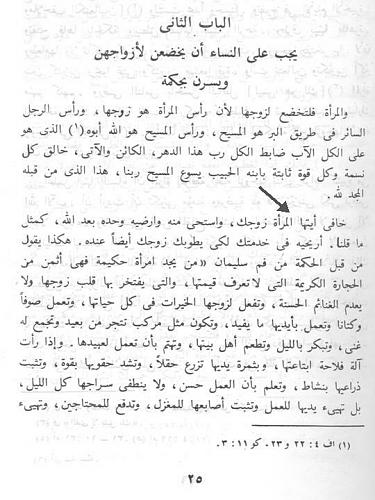 الباب الثانى
يجب على النساء أن يخضعن لأزواجهن
ويسرن بحكمة
والمرأة فلتخضع لزوجها لأن رأس المرأة هو زوجها، ورأس الرجل
السائر فى طريق البر هو المسيح، ورأس المسيح هو الله أبوه(١) الذى هو
على الكل الآب ضابط الكل رب هذا الدهر، الكائن والآتى، خالق كل
نسمة وكل قوة ثابتة بابنه الحبيب يسوع المسيح ربنا، هذا الذى من قبله
المجد لله.
خافى أيتها المرأة زوجك، واستحى منه وارضيه وحده بعد الله، كمثل
ما قلنا. أريحيه فى خدمتك لكى يطوبك زوجك أيضاً عنده. هكذا يقول
من قبل الحكمة من فم سليمان «من يجد امرأة حكيمة فهى أثمن من
الحجارة الكريمة التى لاتعرف قيمتها، والتى يفتخر بها قلب زوجها ولا
يعدم الغنائم الحسنة، وتفعل لزوجها الخيرات فى كل حياتها، وتعمل صوفاً
وكتانا وتعمل بأيديها ما يفيد، وتكون مثل مركب تتجر من بعيد وتجمع له
غنى، وتبكر بالليل وتطعم أهل بيتها، وتهتم بأن تعمل لعبيدها. وإذا رأت
آلة فلاحة ابتاعتها، وبثمرة يديها تزرع حقلاً، وتشد حقويها بقوة، وتثبت
ذراعيها بنشاط، وتعلم بأن العمل حسن، ولا ينطفى سراجها كل الليل،
بل تهيىء يديها للعمل وتثبت أصابعها للمغزل، وتدفع للمحتاجين، وتهيىء
(١) اف ٤: ٢٢ و٢٣. كو ١١: ٣.
٢٥